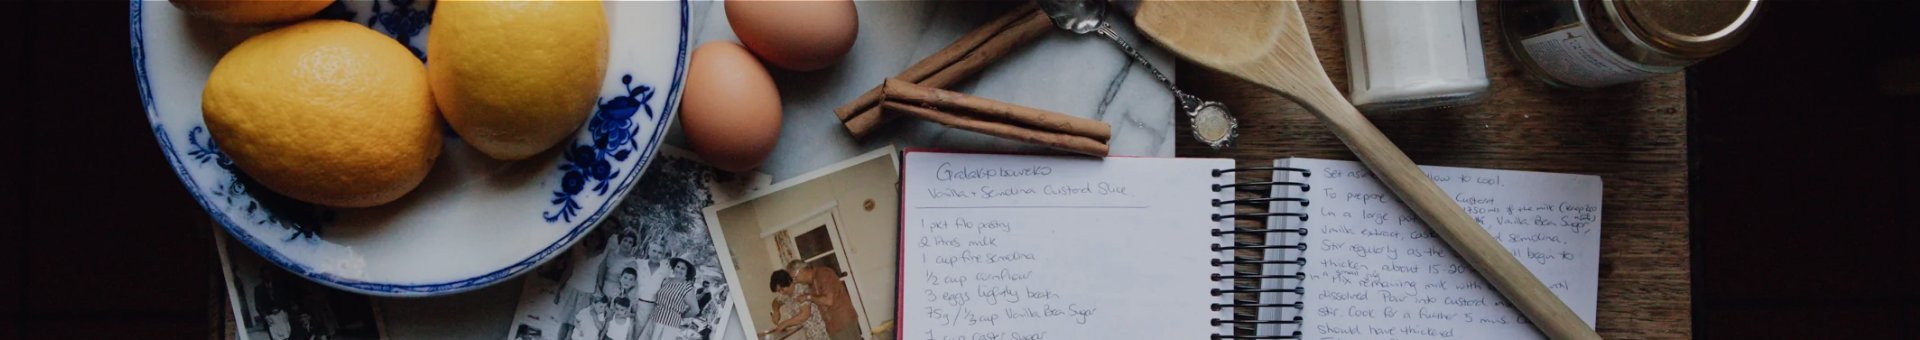 Galaktoboureko
Vanilla + Semolina Custard Slice
1 pkt filo pastry
2 litres milk
1 cup fine semolina
1/2 cup cornflour
3 eggs lightly beaten
75g / 1/3 cup Vanilla Bea Sugar
caster sugar
Set as llow to cool.
To prepare Custard
In a large pot Vanilla Bea Sugar,
Vanilla extract, cast d semolina.
Stir regularly as the ll begin to
thicken, about 15-20
in a small jug
Mix remaining milk with until
dissolved. Pour into custard
stir. Cook for a further 5 mins.
should have thickened